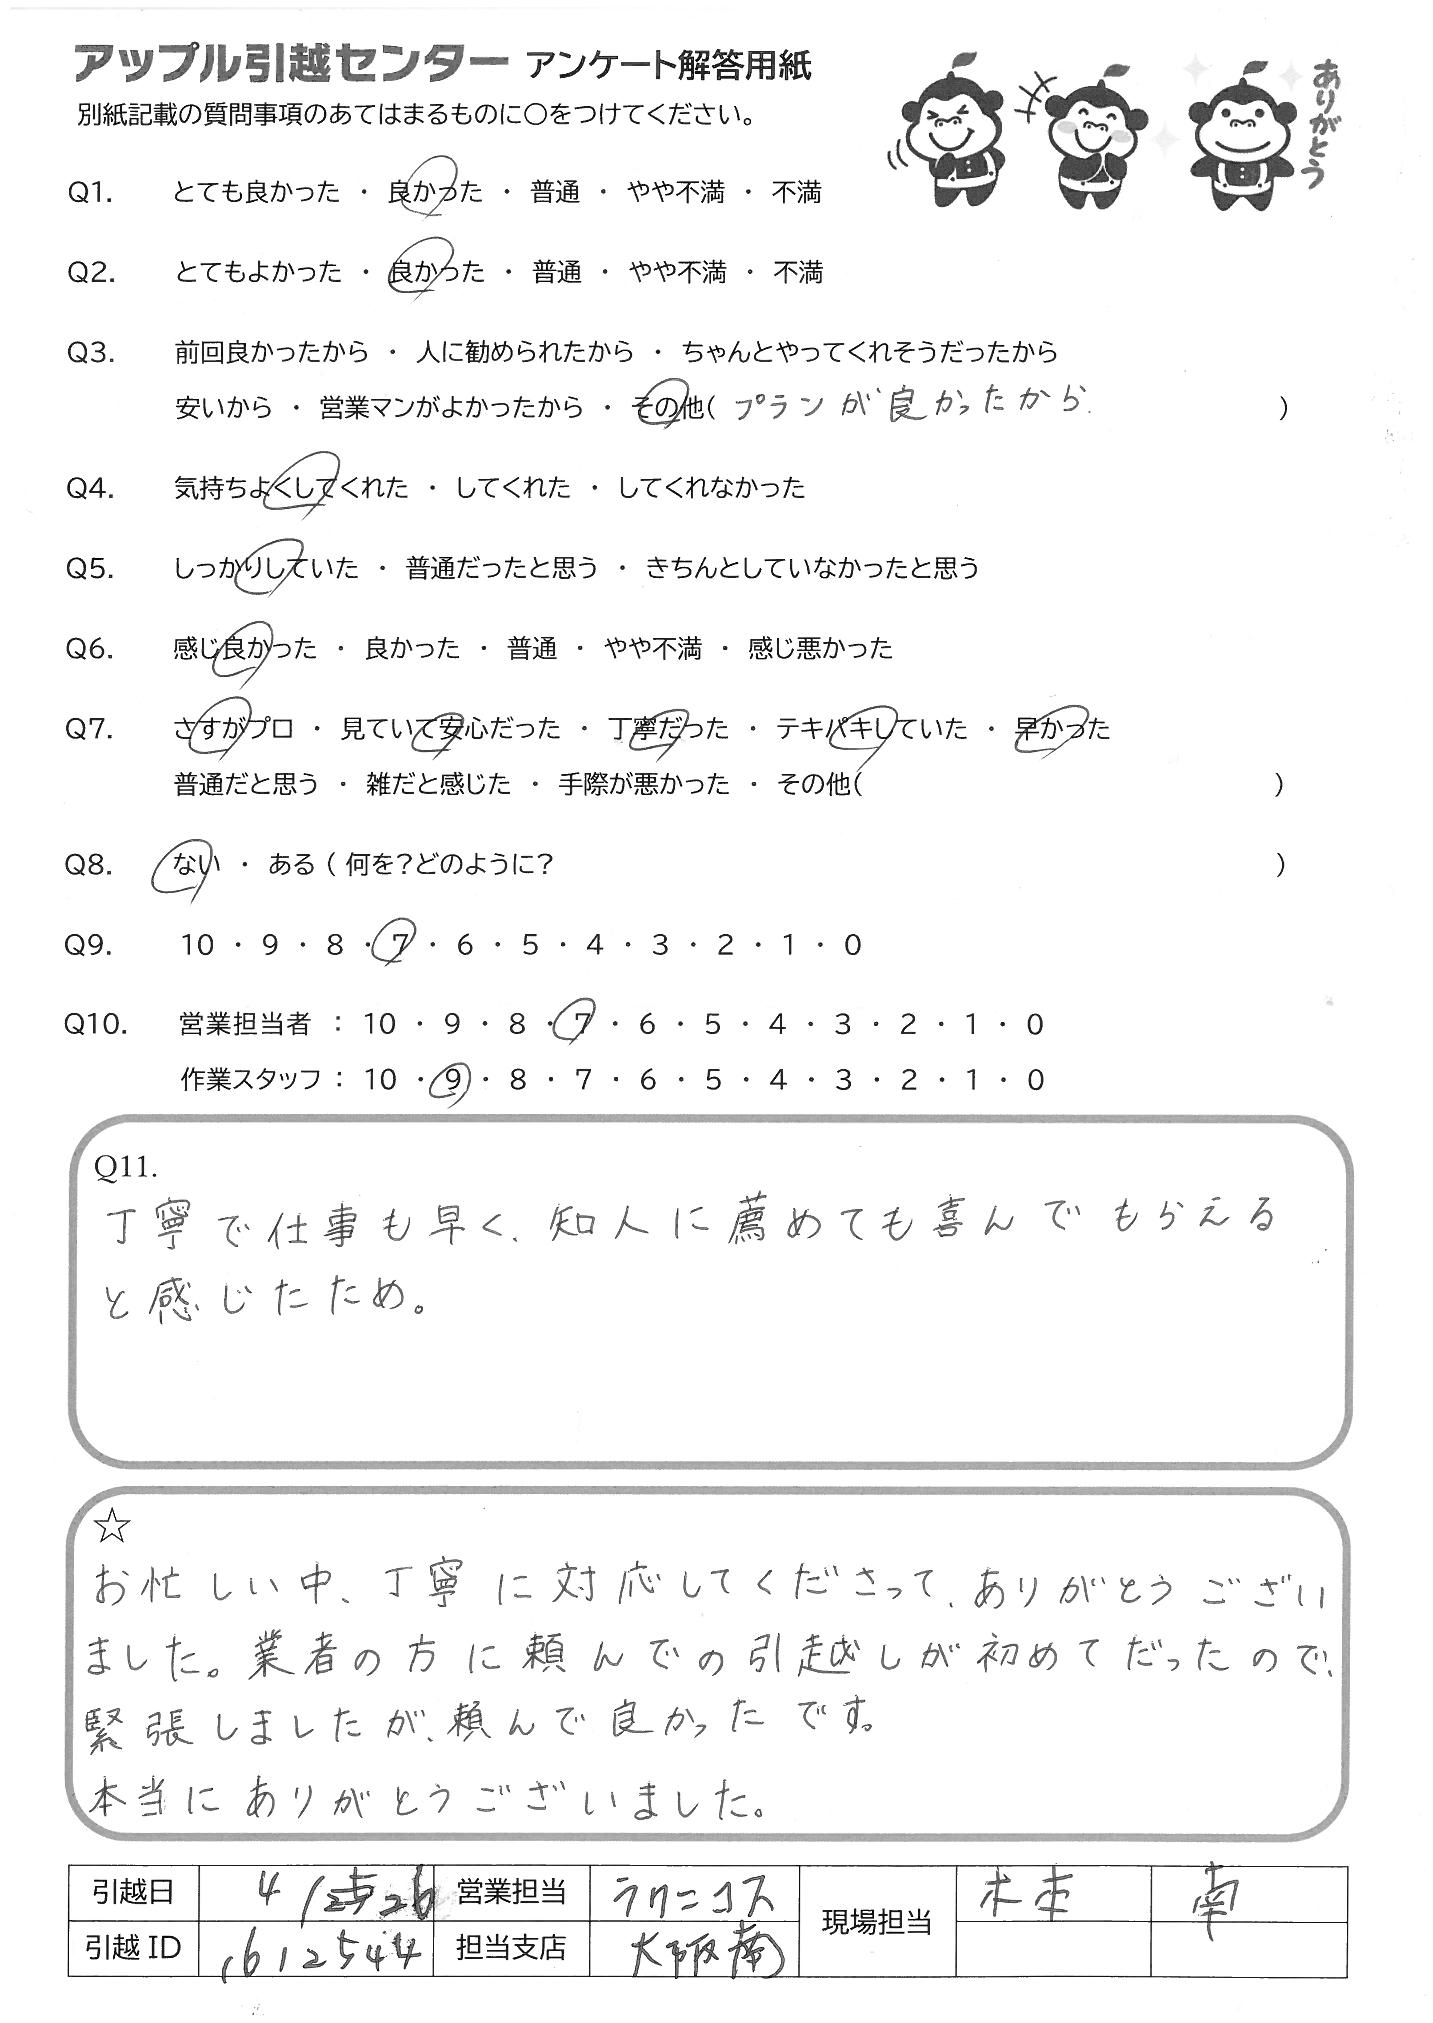 アップル引越センター アンケート解答用紙
ありがとう
別紙記載の質問事項のあてはまるものに○をつけてください。
Q1. とても良かった ・ 良かった ・ 普通 ・ やや不満 ・ 不満
Q2. とてもよかった ・ 良かった ・ 普通 ・ やや不満 ・ 不満
Q3. 前回良かったから ・ 人に勧められたから ・ ちゃんとやってくれそうだったから
安いから ・ 営業マンがよかったから ・ その他( プランが良かったから )
Q4. 気持ちよくしてくれた ・ してくれた ・ してくれなかった
Q5. しっかりしていた ・ 普通だったと思う ・ きちんとしていなかったと思う
Q6. 感じ良かった ・ 良かった ・ 普通 ・ やや不満 ・ 感じ悪かった
Q7. さすがプロ ・ 見ていて安心だった ・ 丁寧だった ・ テキパキしていた ・ 早かった
普通だと思う ・ 雑だと感じた ・ 手際が悪かった ・ その他( )
Q8. ない ・ ある ( 何を?どのように? )
Q9. 10 ・ 9 ・ 8 ・ 7 ・ 6 ・ 5 ・ 4 ・ 3 ・ 2 ・ 1 ・ 0
Q10. 営業担当者 : 10 ・ 9 ・ 8 ・ 7 ・ 6 ・ 5 ・ 4 ・ 3 ・ 2 ・ 1 ・ 0
作業スタッフ : 10 ・ 9 ・ 8 ・ 7 ・ 6 ・ 5 ・ 4 ・ 3 ・ 2 ・ 1 ・ 0
Q11.
丁寧で仕事も早く、知人に薦めても喜んでもらえる
と感じたため。
☆
お忙しい中、丁寧に対応してくださって、ありがとうござい
ました。業者の方に頼んでの引越しが初めてだったので、
緊張しましたが、頼んで良かったです。
本当にありがとうございました。
引越日 4/ 26 営業担当 ラクニコス 現場担当 木本 南
引越ID 1612544 担当支店 大阪南